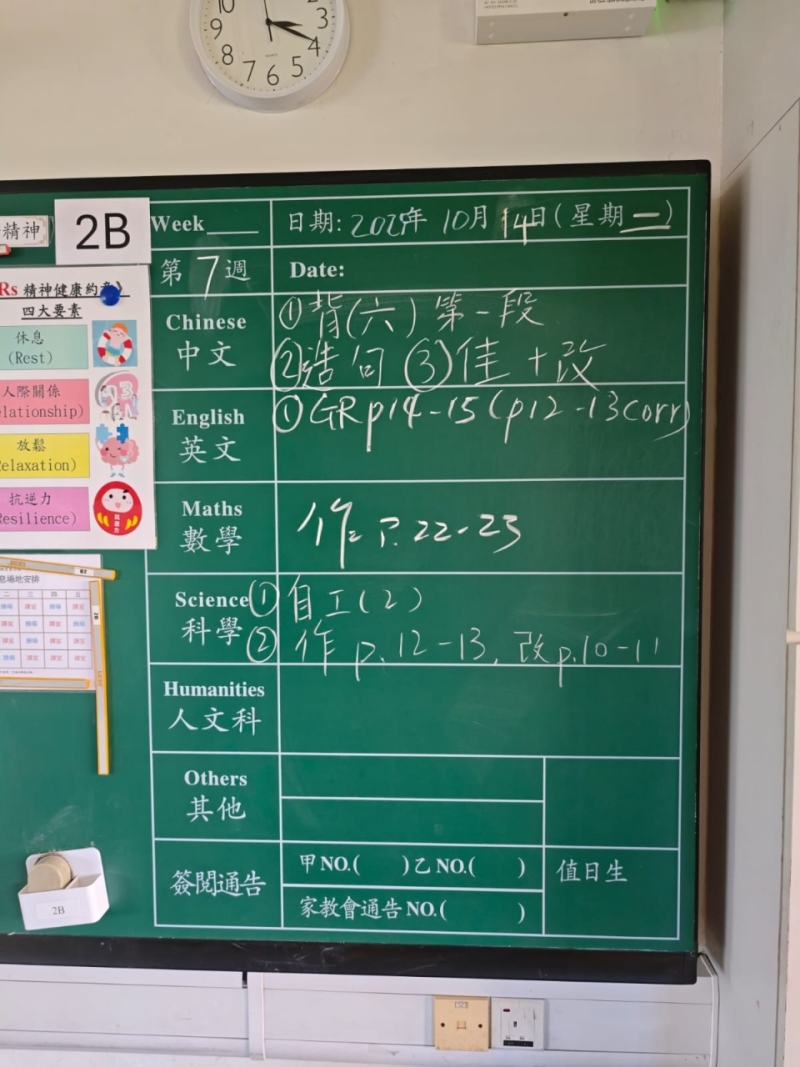 10
3
9
4
8
7
6
5
精神
2B
Week
日期: 2025年 10月 14日 (星期二)
第 7 週
Date:
Rs 精神健康約章》
四大要素
休息
(Rest)
人際關係
elationship)
放鬆
elaxation)
抗逆力
esilience)
Chinese
中文
①背(六) 第一段
②造句 ③佳+改
English
英文
①GR p14-15 (p12-13 corr)
Maths
數學
作= P. 22-23
Science
科學
① 自工(2)
② 作 p. 12-13, 改 p.10-11
Humanities
人文科
Others
其他
簽閱通告
甲NO.( )乙NO.( )
家教會通告 NO.( )
值日生
息場地安排
二 三 四 五
2B